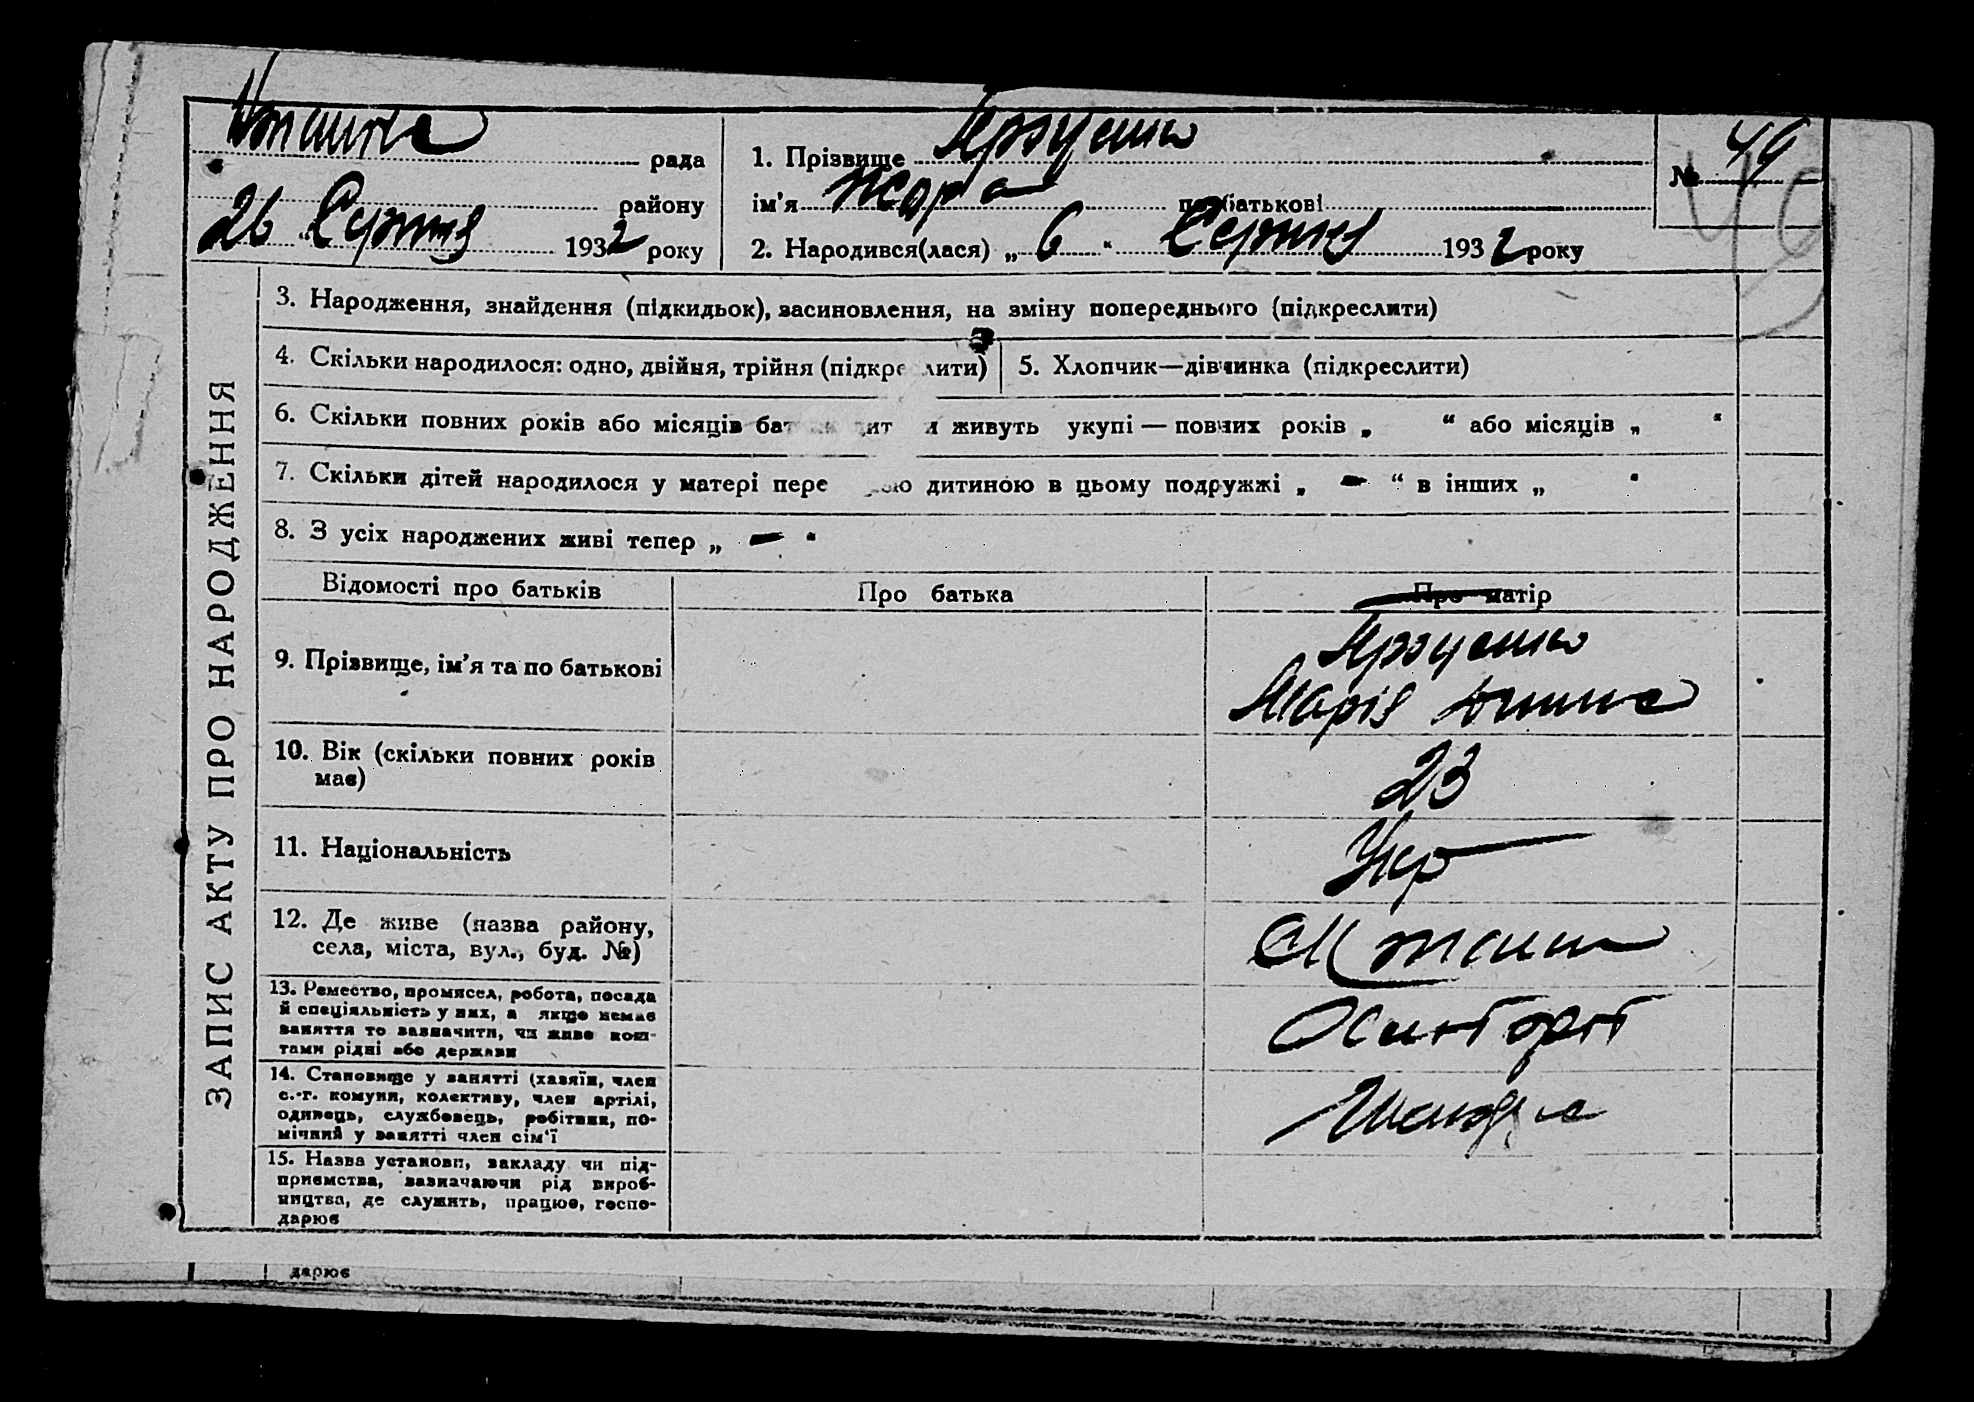 рада
1. Прізвище
№ 49
49
району
ім’я по батькові
26 Серпня 1932 року
2. Народився(лася) „ 6 “ Серпня 1932 року
ЗАПИС АКТУ ПРО НАРОДЖЕННЯ
3. Народження, знайдення (підкидьок), засиновлення, на зміну попереднього (підкреслити)
4. Скільки народилося: одно, двійня, трійня (підкре лити)
5. Хлопчик—дівчинка (підкреслити)
6. Скільки повних років або місяців живуть укупі — повних років „ “ або місяців „ “
7. Скільки дітей народилося у матері дитиною в цьому подружжі „ — “ в інших „ “
8. З усіх народжених живі тепер „ — “
Відомості про батьків
Про батька
Про матір
9. Прізвище, ім’я та по батькові
Марія
10. Вік (скільки повних років
має)
23
11. Національність
Укр
12. Де живе (назва району,
села, міста, вул., буд. №)
13. Ремество, промисел, робота, посада
й спеціяльність у них, а якщо немає
заняття то зазначити, чи живе кош-
тами рідні або держави
14. Становище у занятті (хазяїн, член
с.-г. комуни, колективу, член артілі,
одинець, службовець, робітник, по-
мічний у занятті член сім’ї
15. Назва установи, закладу чи під-
приємства, зазначаючи рід вироб-
ництва, де служить, працює, госпо-
дарює
дарює